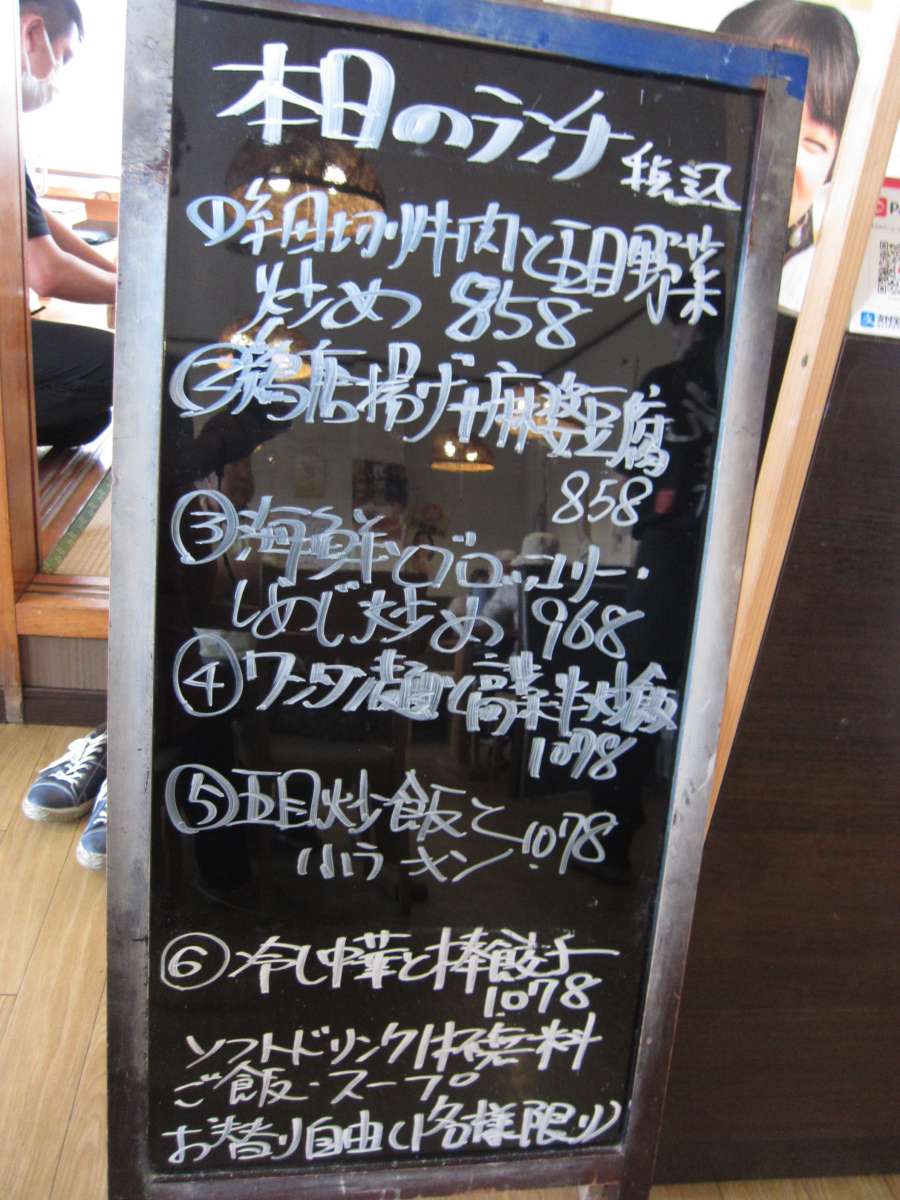 本日のランチ 税込
①細切り牛肉と五目野菜
炒め 858
②鶏唐揚げ+麻婆豆腐
858
③海鮮とブロッコリー・
しめじ炒め 968
④ワンタン麺と高菜半炒飯
1078
⑤五目炒飯と
小ラーメン 1078
⑥冷し中華と棒餃子
1078
ソフトドリンク1杯無料
ご飯・スープ
お替り自由(1名様限り)